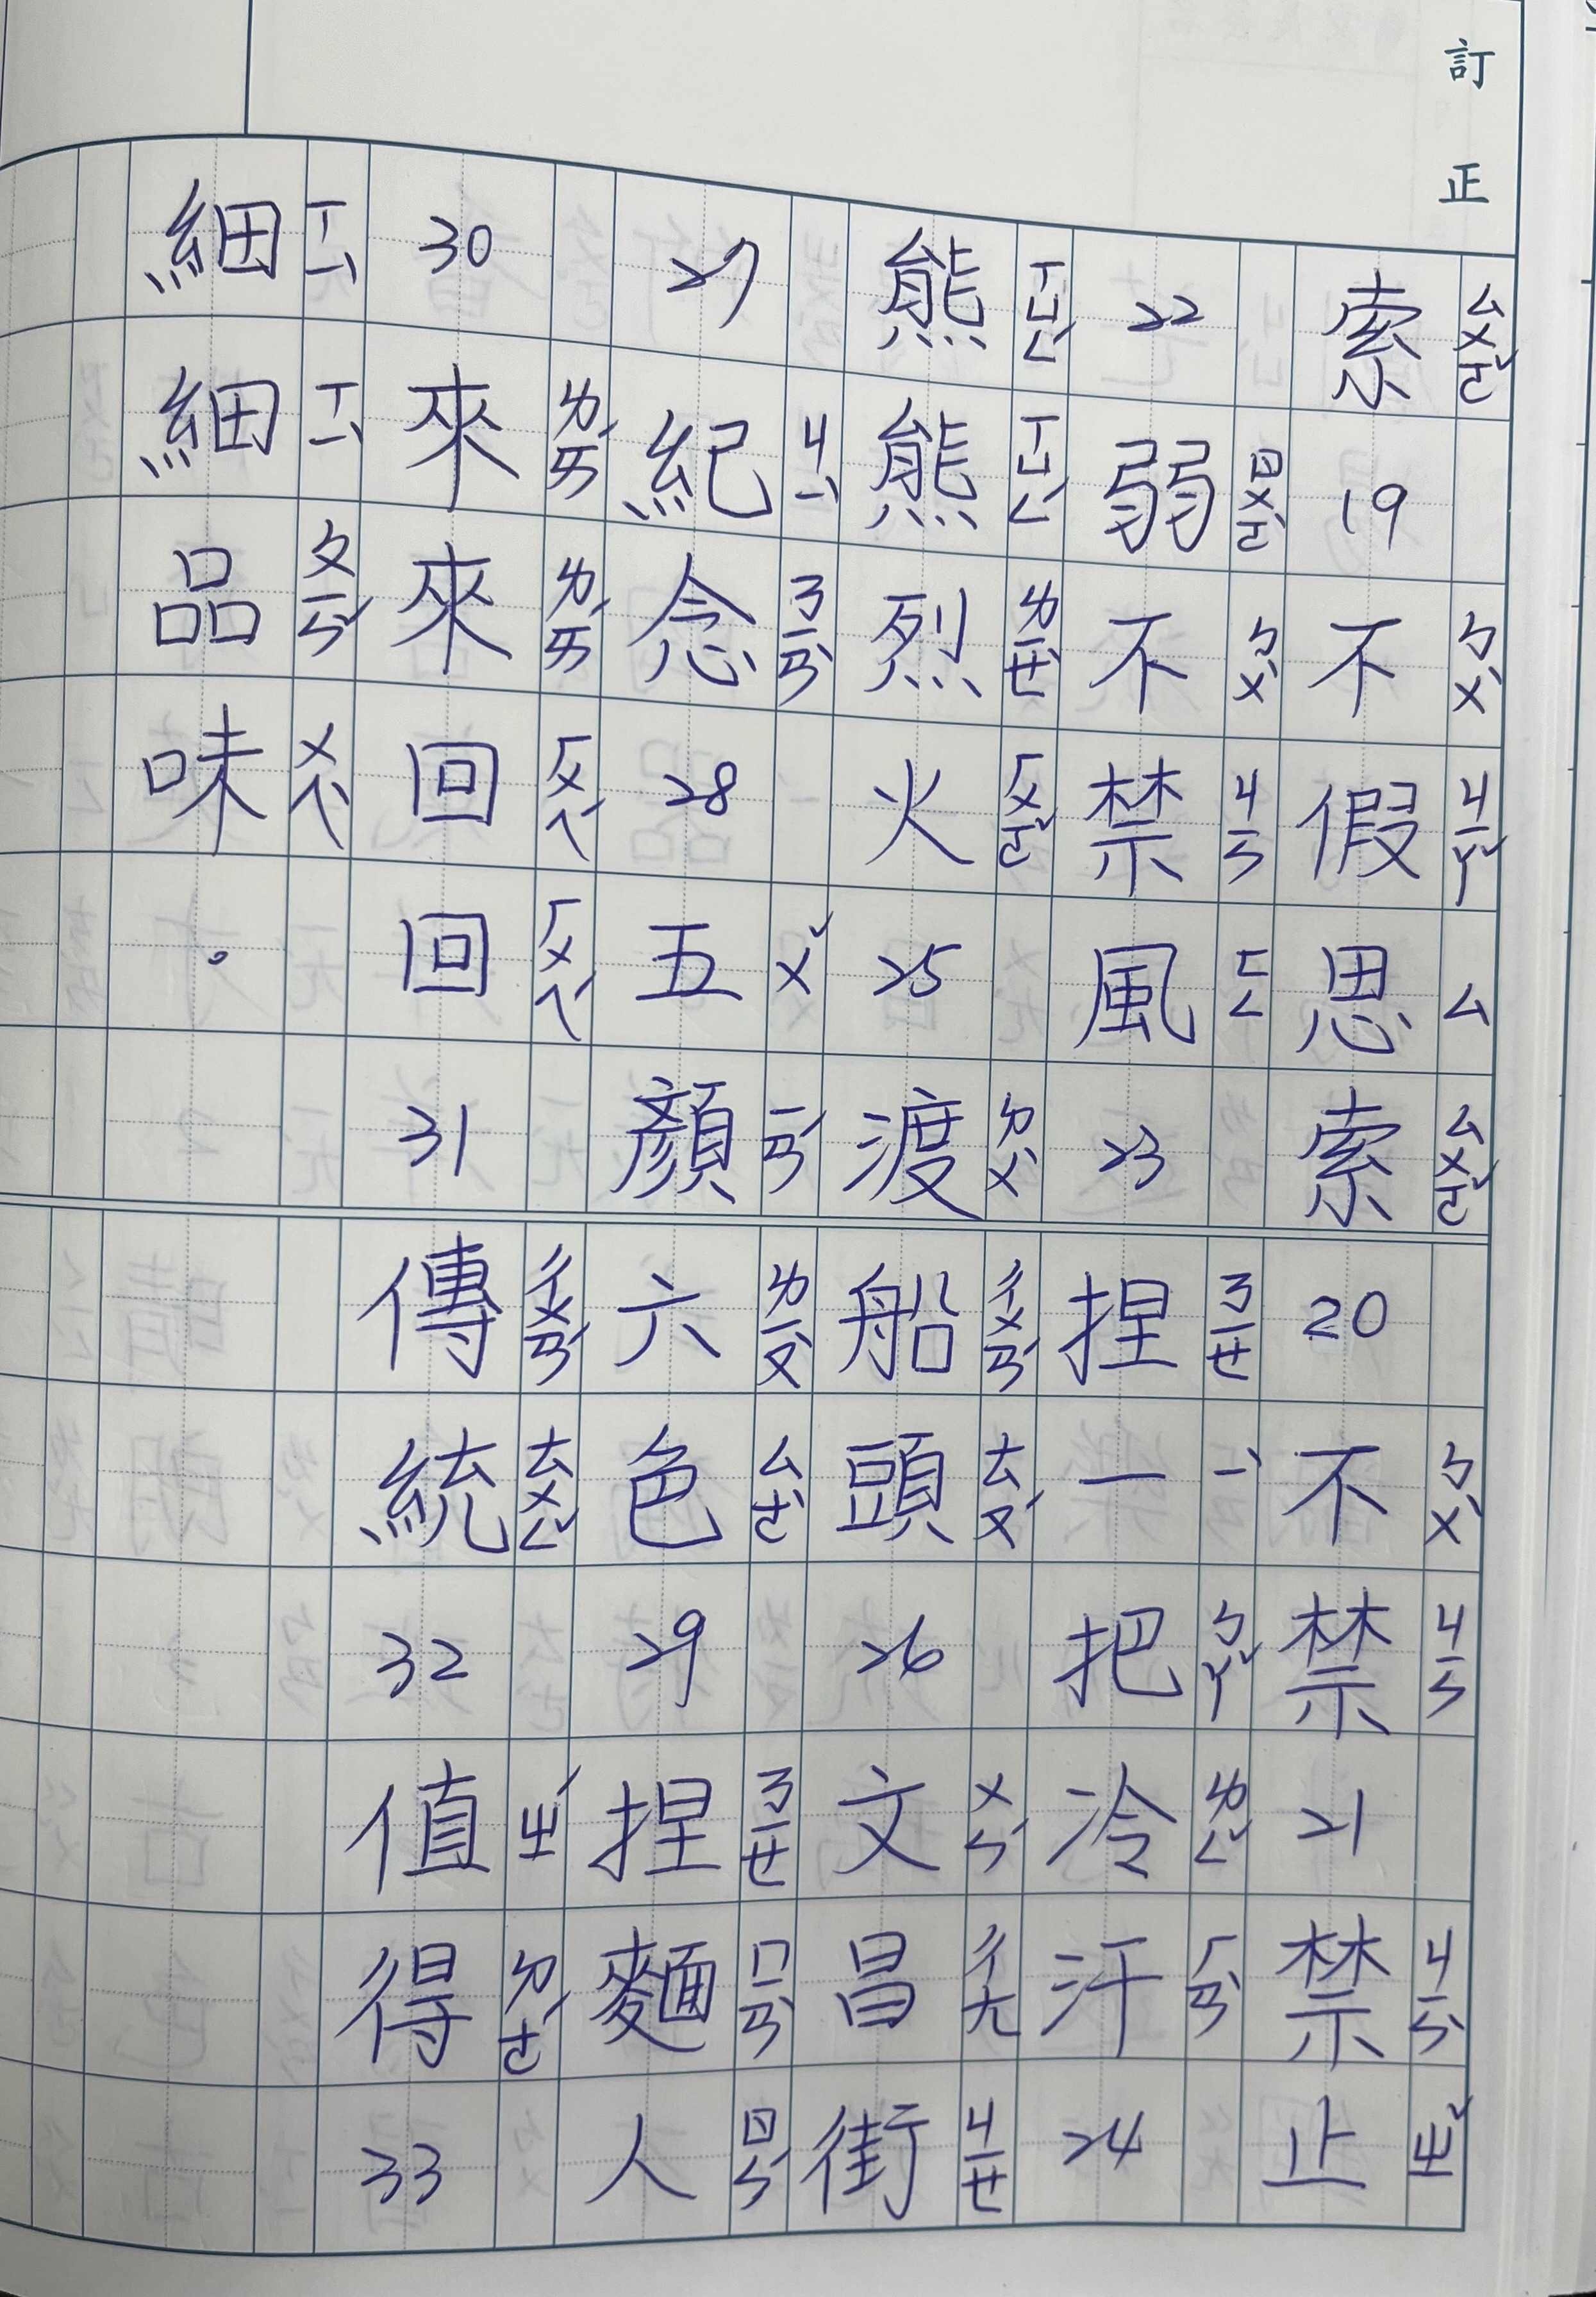 訂正
索ㄙㄨㄛˇ 19 不ㄅㄨˋ 假ㄐㄧㄚˇ 思ㄙ 索ㄙㄨㄛˇ 20 不ㄅㄨˋ 禁ㄐㄧㄣ 21 禁ㄐㄧㄣˋ 止ㄓˇ
22 弱ㄖㄨㄛˋ 不ㄅㄨˋ 禁ㄐㄧㄣ 風ㄈㄥ 23 捏ㄋㄧㄝ 一ㄧˋ 把ㄅㄚˇ 冷ㄌㄥˇ 汗ㄏㄢˋ 24
熊ㄒㄩㄥˊ 熊ㄒㄩㄥˊ 烈ㄌㄧㄝˋ 火ㄏㄨㄛˇ 25 渡ㄉㄨˋ 船ㄔㄨㄢˊ 頭ㄊㄡˊ 26 文ㄨㄣˊ 昌ㄔㄤ 街ㄐㄧㄝ
27 紀ㄐㄧˋ 念ㄋㄧㄢˋ 28 五ㄨˇ 顏ㄧㄢˊ 六ㄌㄧㄡˋ 色ㄙㄜˋ 29 捏ㄋㄧㄝ 麵ㄇㄧㄢˋ 人ㄖㄣˊ
30 來ㄌㄞˊ 來ㄌㄞˊ 回ㄏㄨㄟˊ 回ㄏㄨㄟˊ 31 傳ㄔㄨㄢˊ 統ㄊㄨㄥˇ 32 值ㄓˊ 得ㄉㄜˊ 33
細ㄒㄧˋ 細ㄒㄧˋ 品ㄆㄧㄣˇ 味ㄨㄟˋ 。